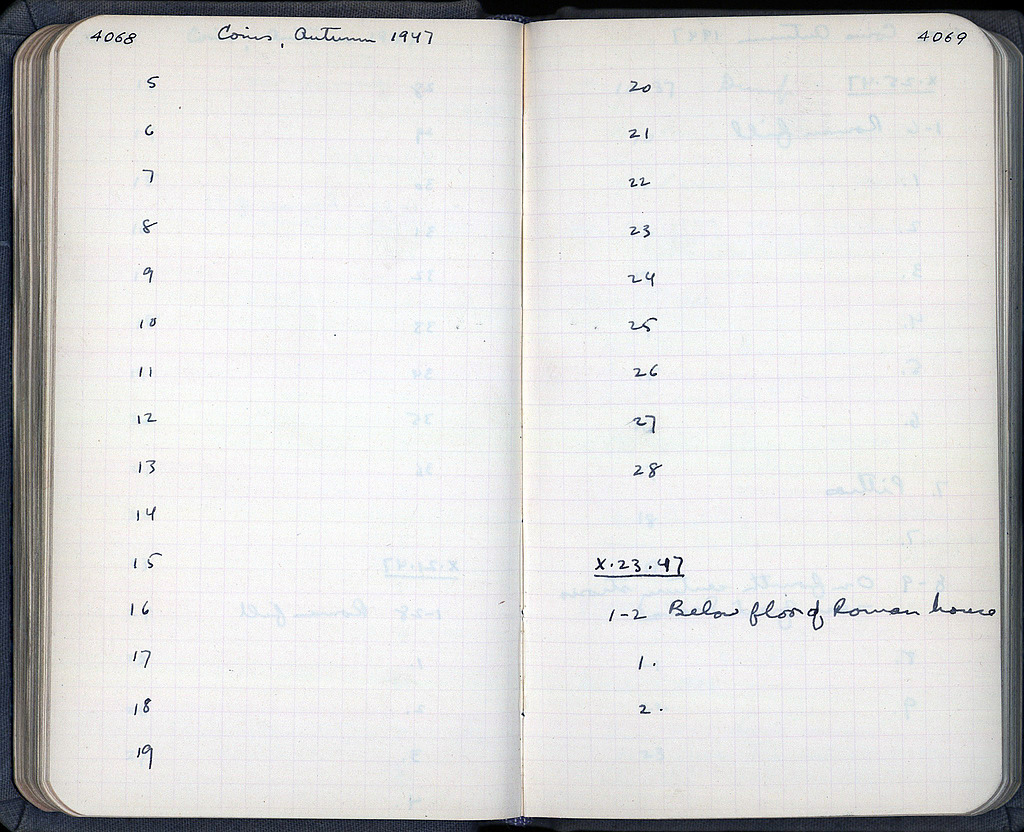 4068
Coins, Autumn 1947
5
6
7
8
9
10
11
12
13
14
15
16
17
18
19
4069
20
21
22
23
24
25
26
27
28
X.23.47
1-2 Below floor of Roman house
1.
2.